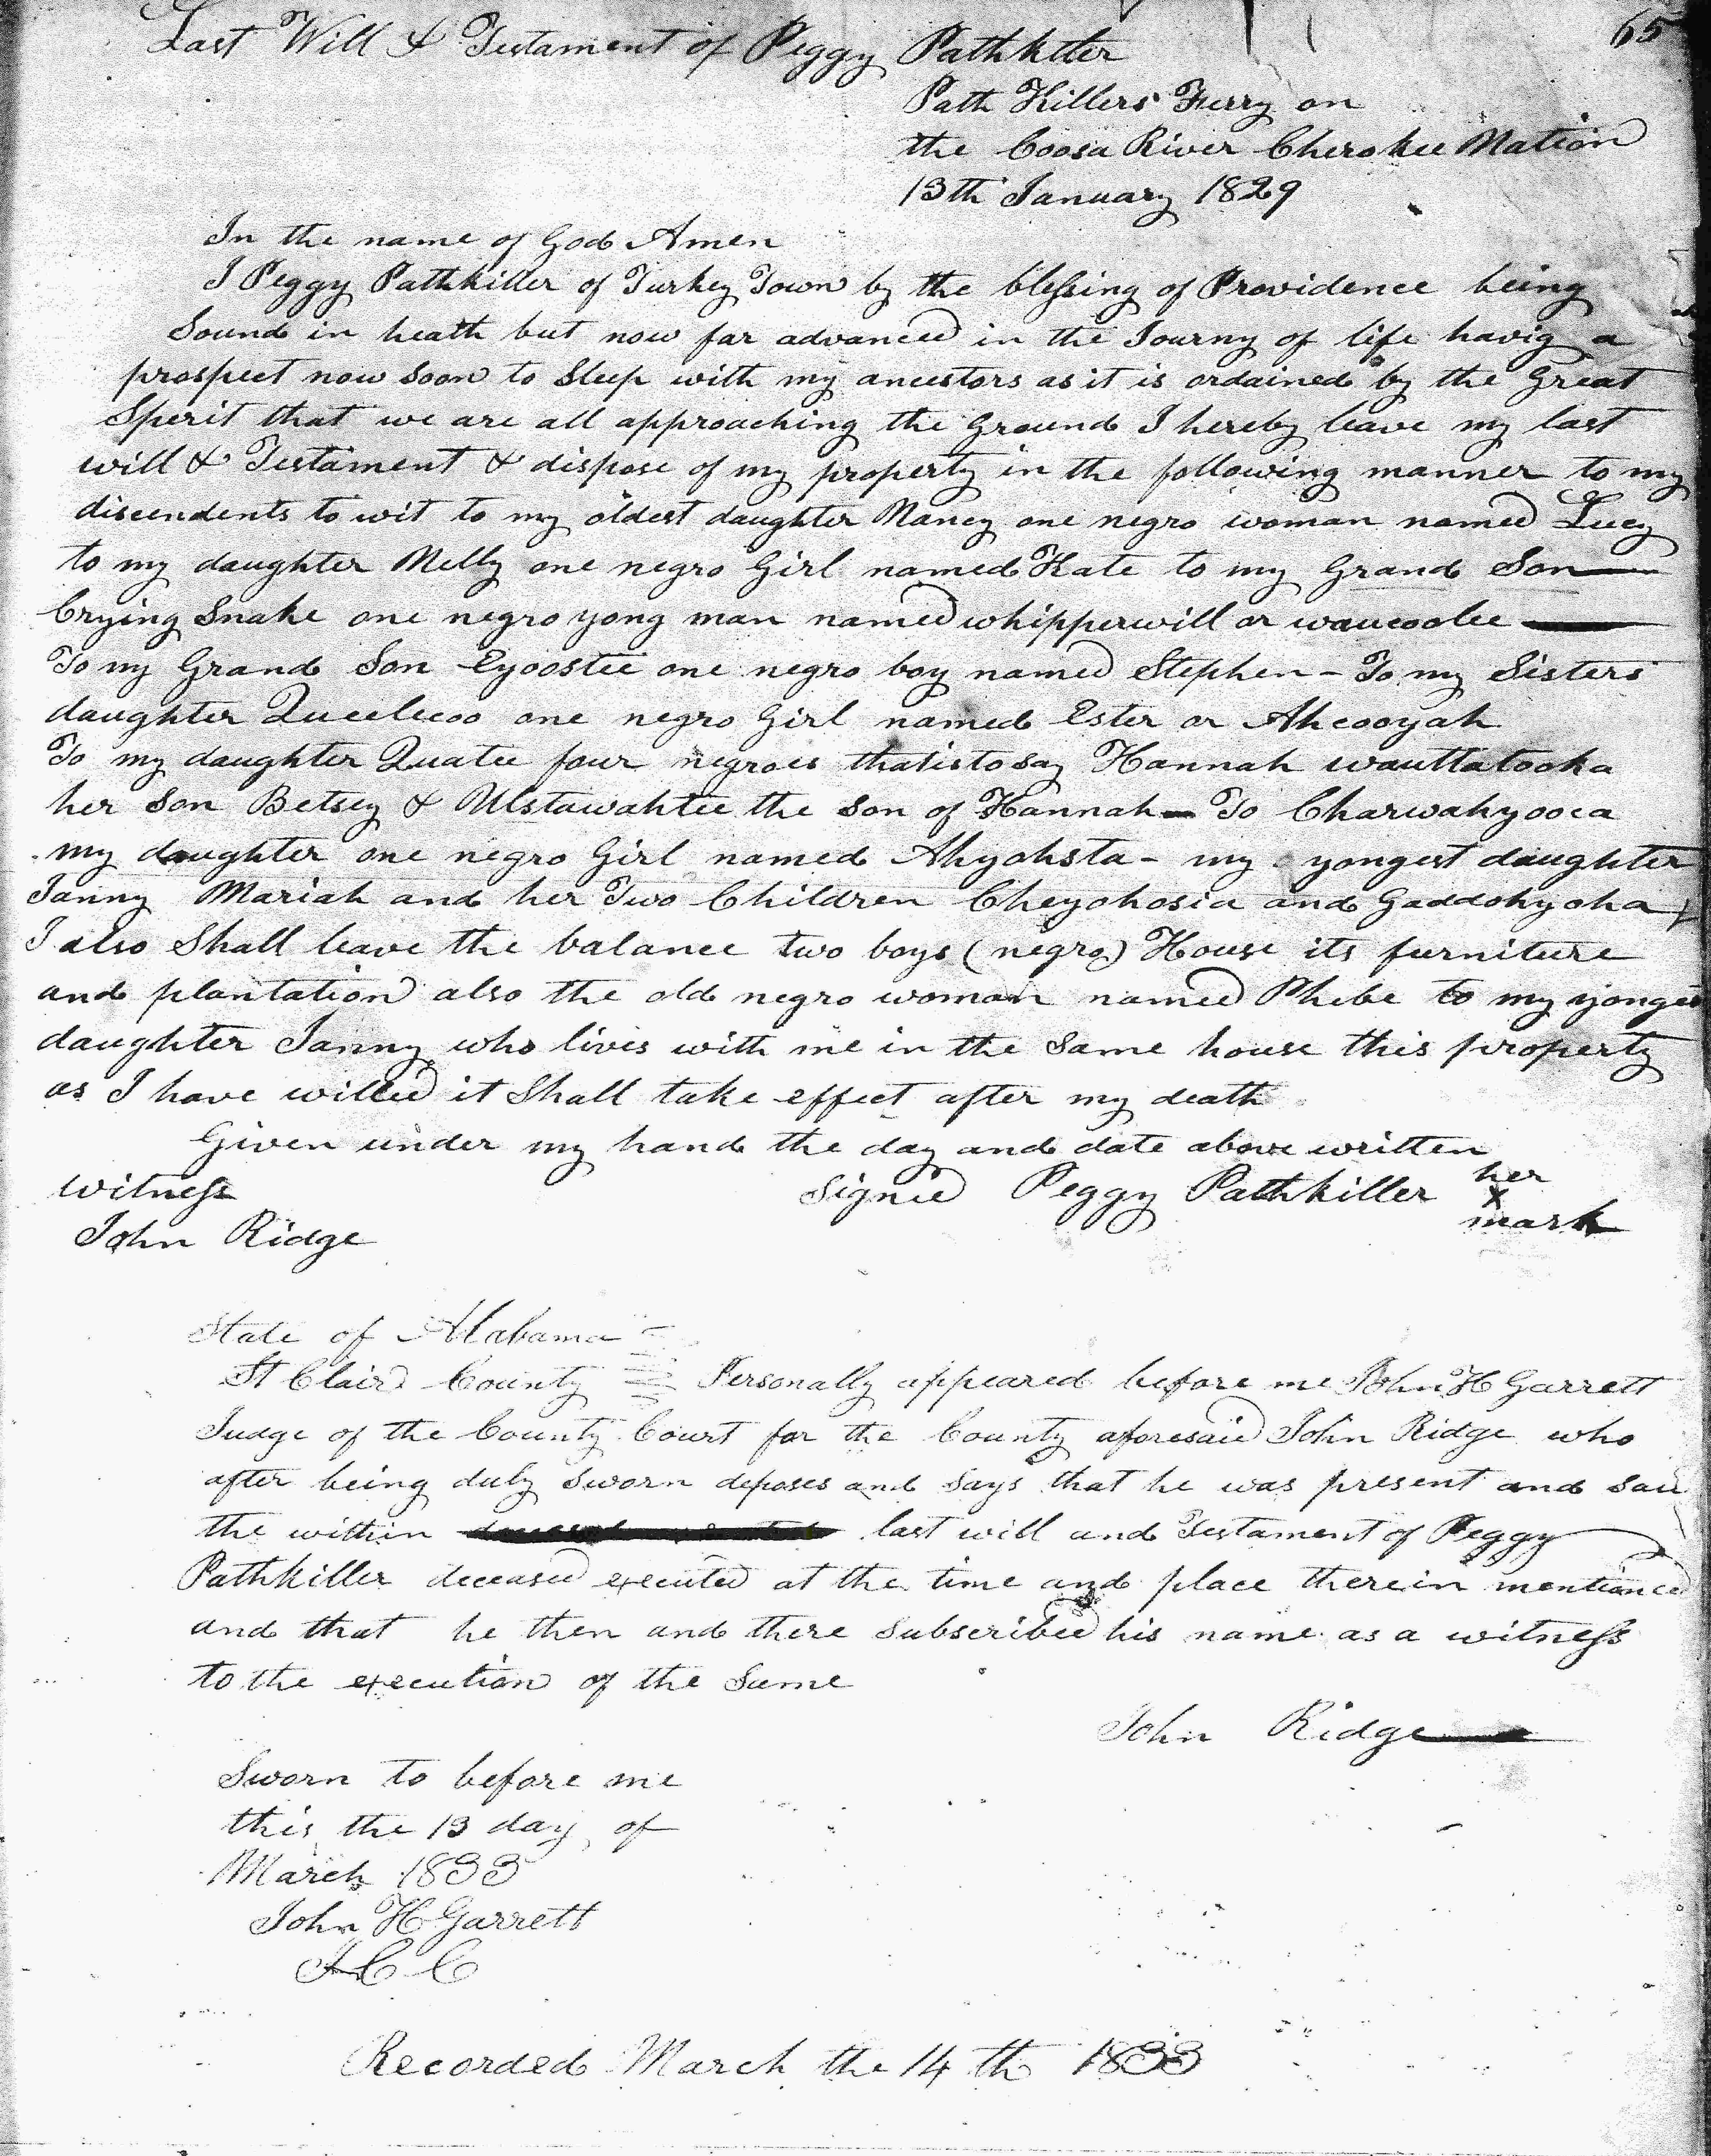 65
Last Will & Testament of Peggy Pathkiler
Path Killers Ferry on
the Coosa River Cherokee Nation
13th January 1829
In the name of God Amen
I Peggy Pathkiller of Turkey Town by the blessing of Providence being
Sound in heath but now far advanced in the Journy of life havig a
prospect now soon to Sleep with my ancestors as it is ordained by the Great
Sperit that we are all approaching the Ground I hereby leave my last
will & Testament & dispose of my property in the following manner to my
discendents to wit to my oldest daughter Nancy one negro woman named Lucy
to my daughter Nelly one negro Girl named Kate to my Grand Son
Crying Snake one negro yong man named whipperwill or waucoolee
To my Grand Son Eyoostee one negro boy named Stephen - To my Sisters
daughter Queelecoo one negro Girl named Ester or Ahcooyah
To my daughter Quatee four negroes that is to say Hannah wauttatooka
her Son Betsey & Ulstawahtee the Son of Hannah - To Charwahyooca
my daughter one negro Girl named Ahyohsta - my yongest daughter
Janny Mariah and her Two Children Cheyohosia and Gaddohyoha
I also Shall leave the balance two boys (negro) House its furniture
and plantation also the old negro woman named Phebe to my yonges
daughter Janny who lives with me in the Same house this property
as I have willed it Shall take effect after my death
Given under my hand the day and date above written
witness Signed Peggy Pathkiller her
x
John Ridge mark
State of Alabama
St Clair County Personally appeared before me John H Garrett
Judge of the County Court for the County aforesaid John Ridge who
after being duly Sworn deposes and Says that he was present and saw
the within last will and Testament of Peggy
Pathkiller deceased executed at the time and place therein mentioned
and that he then and there Subscribed his name as a witness
to the execution of the Same
John Ridge
Sworn to before me
this the 13 day of
March 1833
John H Garrett
J C C
Recorded March the 14 th 1833